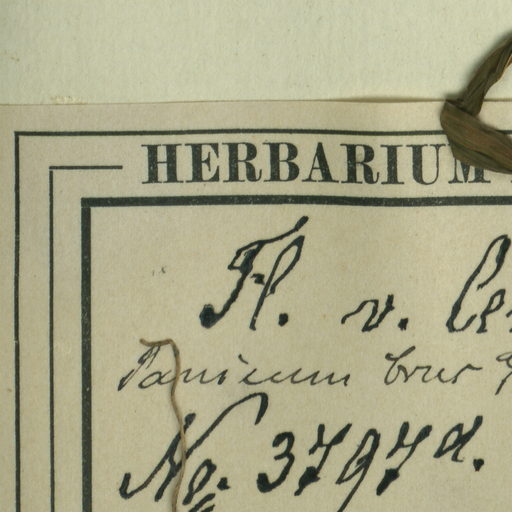 HERBARIUM
Fl. v. Ce
Panicum crus g
No. 3797a.